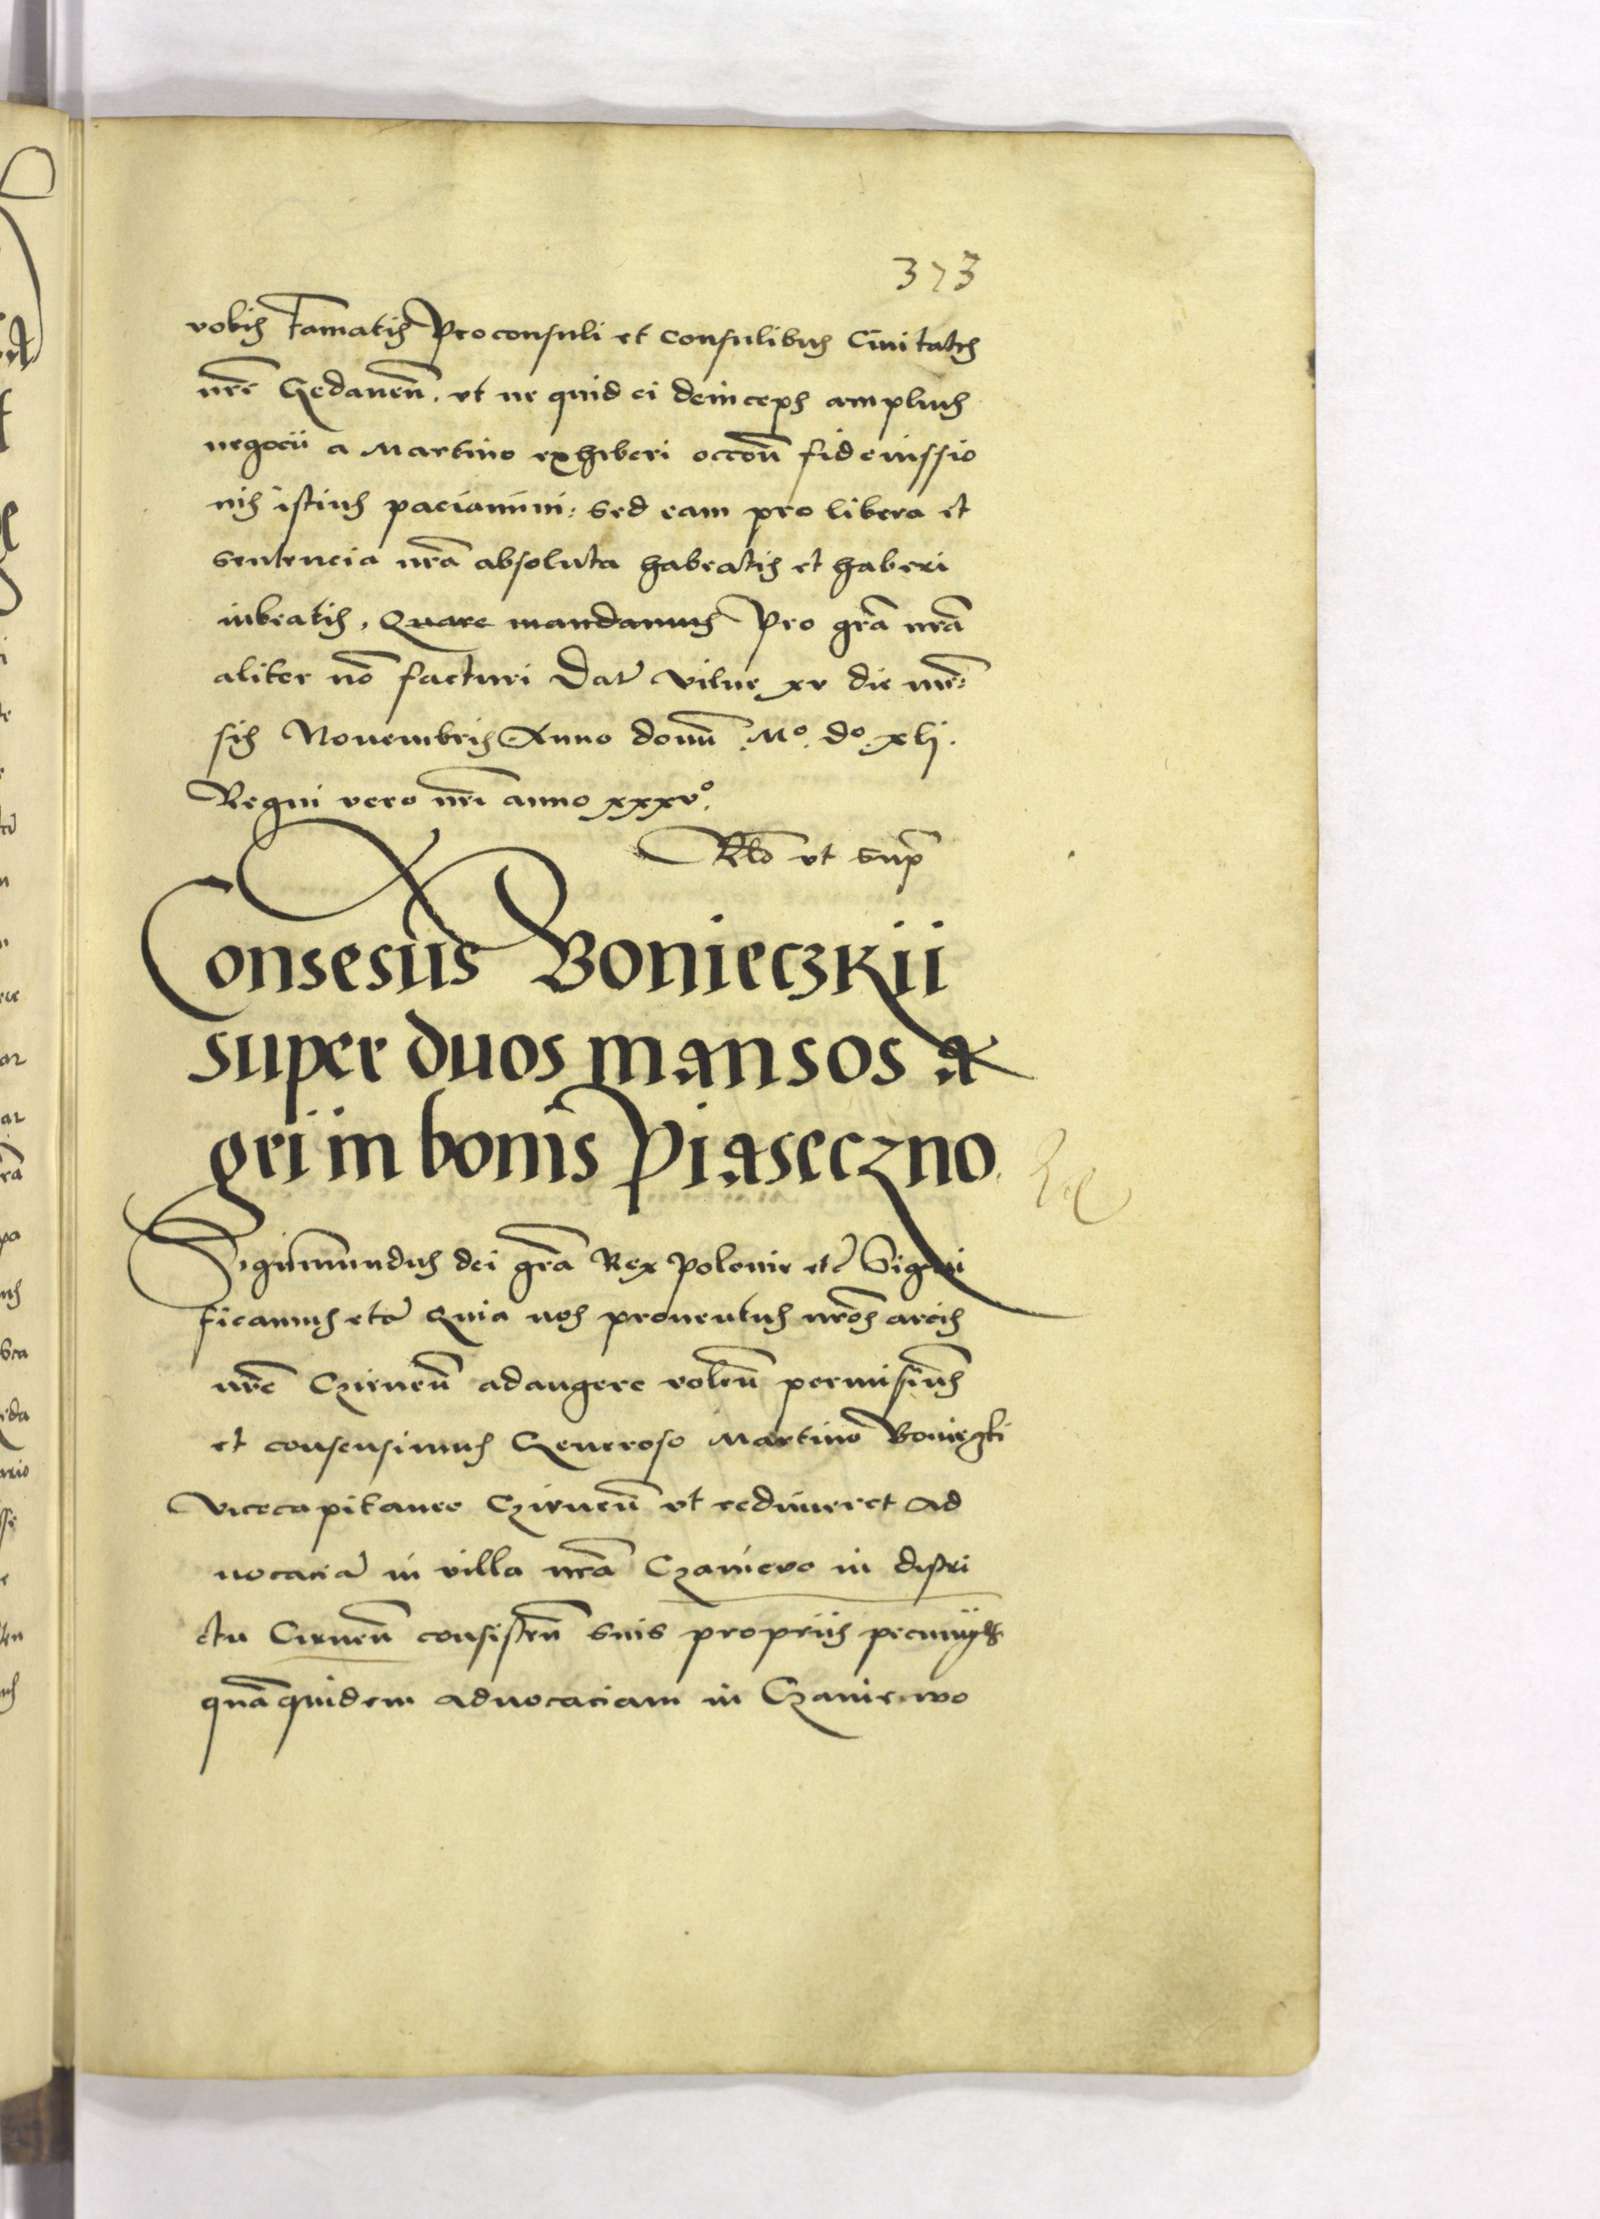 373
vobis famatis Proconsuli et consulibus Civitatis
nre Gedanen. ut ne quid ei deinceps amplius
negocii a Martino exhiberi occoe fideiussio
nis istius paciamini: sed eam pro libera et
sentencia nra absoluta habeatis et haberi
iubeatis. Quare mandamus Pro gra nra
aliter no facturi Dat Vilne xv die men=
sis Novembris Anno domi Mo. do. xlj.
Regni vero nri anno xxxvo.
Rlo ut supra
Consesus Bonieczkii
super duos mansos a
gri in bonis Piaseczno.
Sigismundus dei gra Rex Polonie etc Signi
ficamus etc Quia nos proventus nros arcis
nre Czirnen adaugere volen permisims
et consensimus Generoso Martino Boniegki
Vicecapitaneo Czirnen ut redimeret ad
uocacia in villa nra Czanievo in distri
ctu Cirnen consisten suis propriis pecuniis
qua quidem aduocaciam in Czanievo